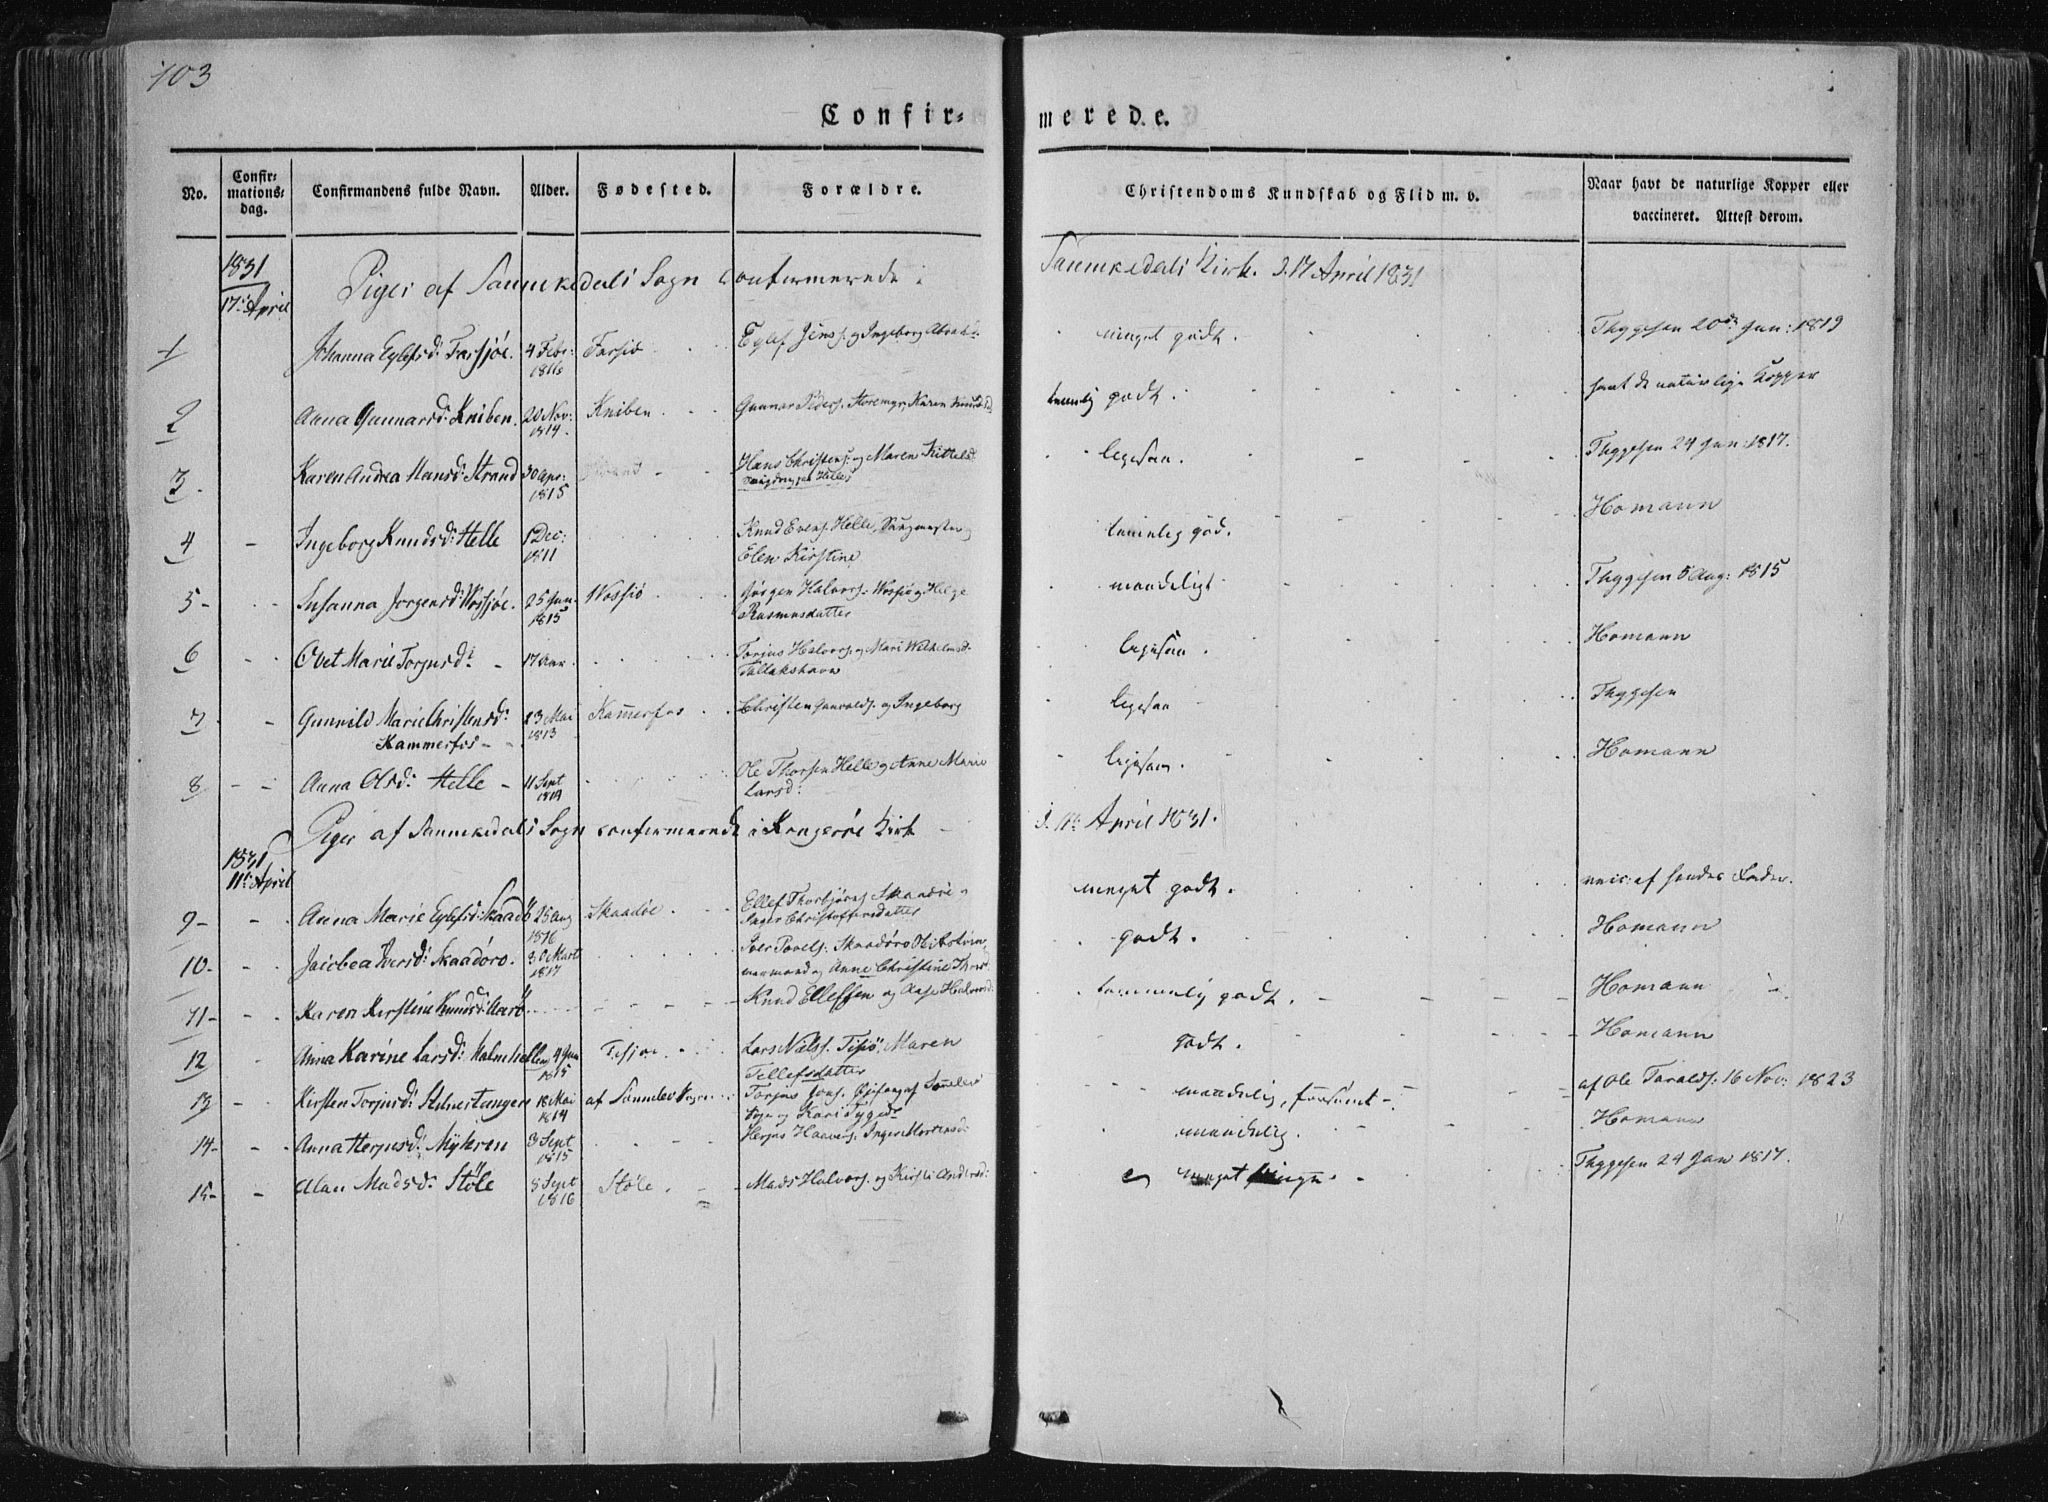 103
Confir- merede.
No. Confir-mations-dag. Confirmandens fulde Navn. Alder. Fødested. Forældre. Christendoms Kundskab og Flid m. v. Naar havt de naturlige Kopper eller vaccineret. Attest derom.
1831 17de April Piger af Sannikedals Sogn Confirmerede i Sannikedals Kirk. d. 17 April 1831
1 Johanna Eylefsd: Farsjøe. 4 Febr: Farsiø Eylef Jenss. og Ingeborg meget godt. Thygesen 20de Jun: 1819
2 Anna Gunnarsd: Kniben. 20 Nov: 1814. Kniben Gunnar Peders. Storemyr, Karen temlig godt. havt de naturlige Kopper
3. Karen Andrea Hansd: Strand 30 Apr: 1815 Strand Hans Christens: og Maren Kittelsd: Helle ligesaa. Thygesen 24 Jun: 1817.
4 Ingeborg Knudsd: Helle 1 Dec: 1811 Knud Evens. Helle, Elen Kirstine temmelig god. Homann
5 Susanna Jørgensd: Wosjøe. 25 Jan. 1815 Wossiø Jørgen Halvors. Wossiø og Helge Rasmusdatter maadeligt Thygesen 5 Aug: 1815
6 Ovet Marie Torjusd: 17 Aar Torjus Halvors. og Mari Wilhelmsd: Tallakshavn ligesaa. Homann
7 Gunnild Marie Christensd: Kammerfos 23 Mai 1813 Kammerfos Christen Gunvalds. og Ingeborg ligesaa Thygesen
8 Anna Olsd: Helle 11 Sept 1814 Ole Thorsen Helle og Anne Marie Larsd: ligesaa. Homann
Piger af Sannikedals Sogn confirmerede i Kragerøe Kirk d. 11te April 1831.
1831 11te April
9 Anna Marie Eylefsd: Skaadø 25 Aug 1816 Skaadøe Ellef Thorbjørns. Skaadøe og Inger Christoffersdatter meget godt. vacc: af hendes Fader.
10 Jacobea Iversd: Skaadøro. 30 Marts 1817 Iver Povels. Skaadøro og Anne Christine godt. Homann
11 Karen Kirstine Knudsd: Knud Elleffsen og Aase Halvorsd: temmelig godt. Homann
12 Anna Karine Larsd: 4 Jun 1815 Lars Niels. Maren Tellefsdatter godt. Homann
13 Kirsten Torjusd: 18 Mai 1814 af Sannikedals Sogn Torjus Jons. Sogn og Kari maadelig, forsømt af Ole Taralds: 16 Nov: 1823
14 Anna Herjusd: Myhren 3 Sept 1815 Herjus Haavors. Inger Mortensd: maadelig. Homann
15 Alan Madsd: Støle 8 Sept 1816 Støle Mads Halvors. og Kirsti Andersd: meget Thygesen 24 Jan 1817.